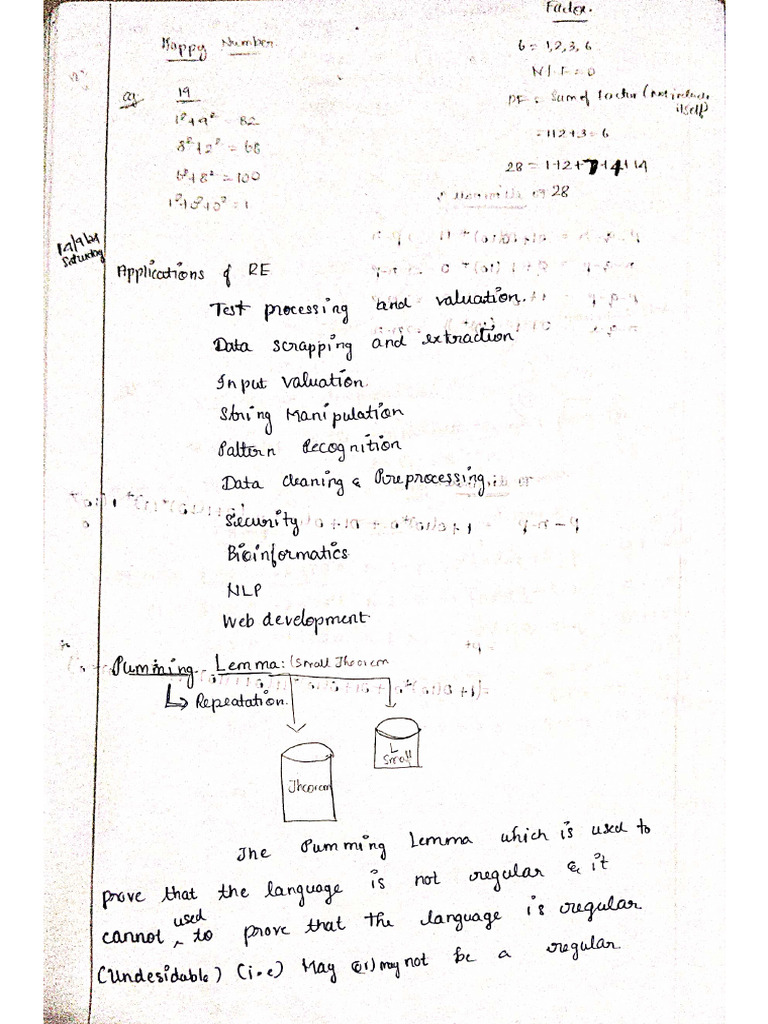 Happy Number.
eg 19
1²+9² = 82
8²+2² = 68
6²+8² = 100
1²+0²+0² = 1
Factor.
6 = 1,2,3,6
N % F = 0
PF = Sum of factor (not include
itself)
= 1+2+3 = 6
28 = 1+2+7+4+14
28
Saturday
Applications of RE
Test processing and valuation.
Data scrapping and extraction
Input valuation.
String Manipulation
Pattern Recognition
Data cleaning & Preprocessing.
Security
Bioinformatics
NLP
Web development
Pumming Lemma: (Small Theorem
↳ Repeatation.
L
Small
Theorem
The Pumming Lemma which is used to
prove that the language is not regular & it
cannot used to prove that the language is regular
(Undesidable) (i.e) May (or) may not be a regular